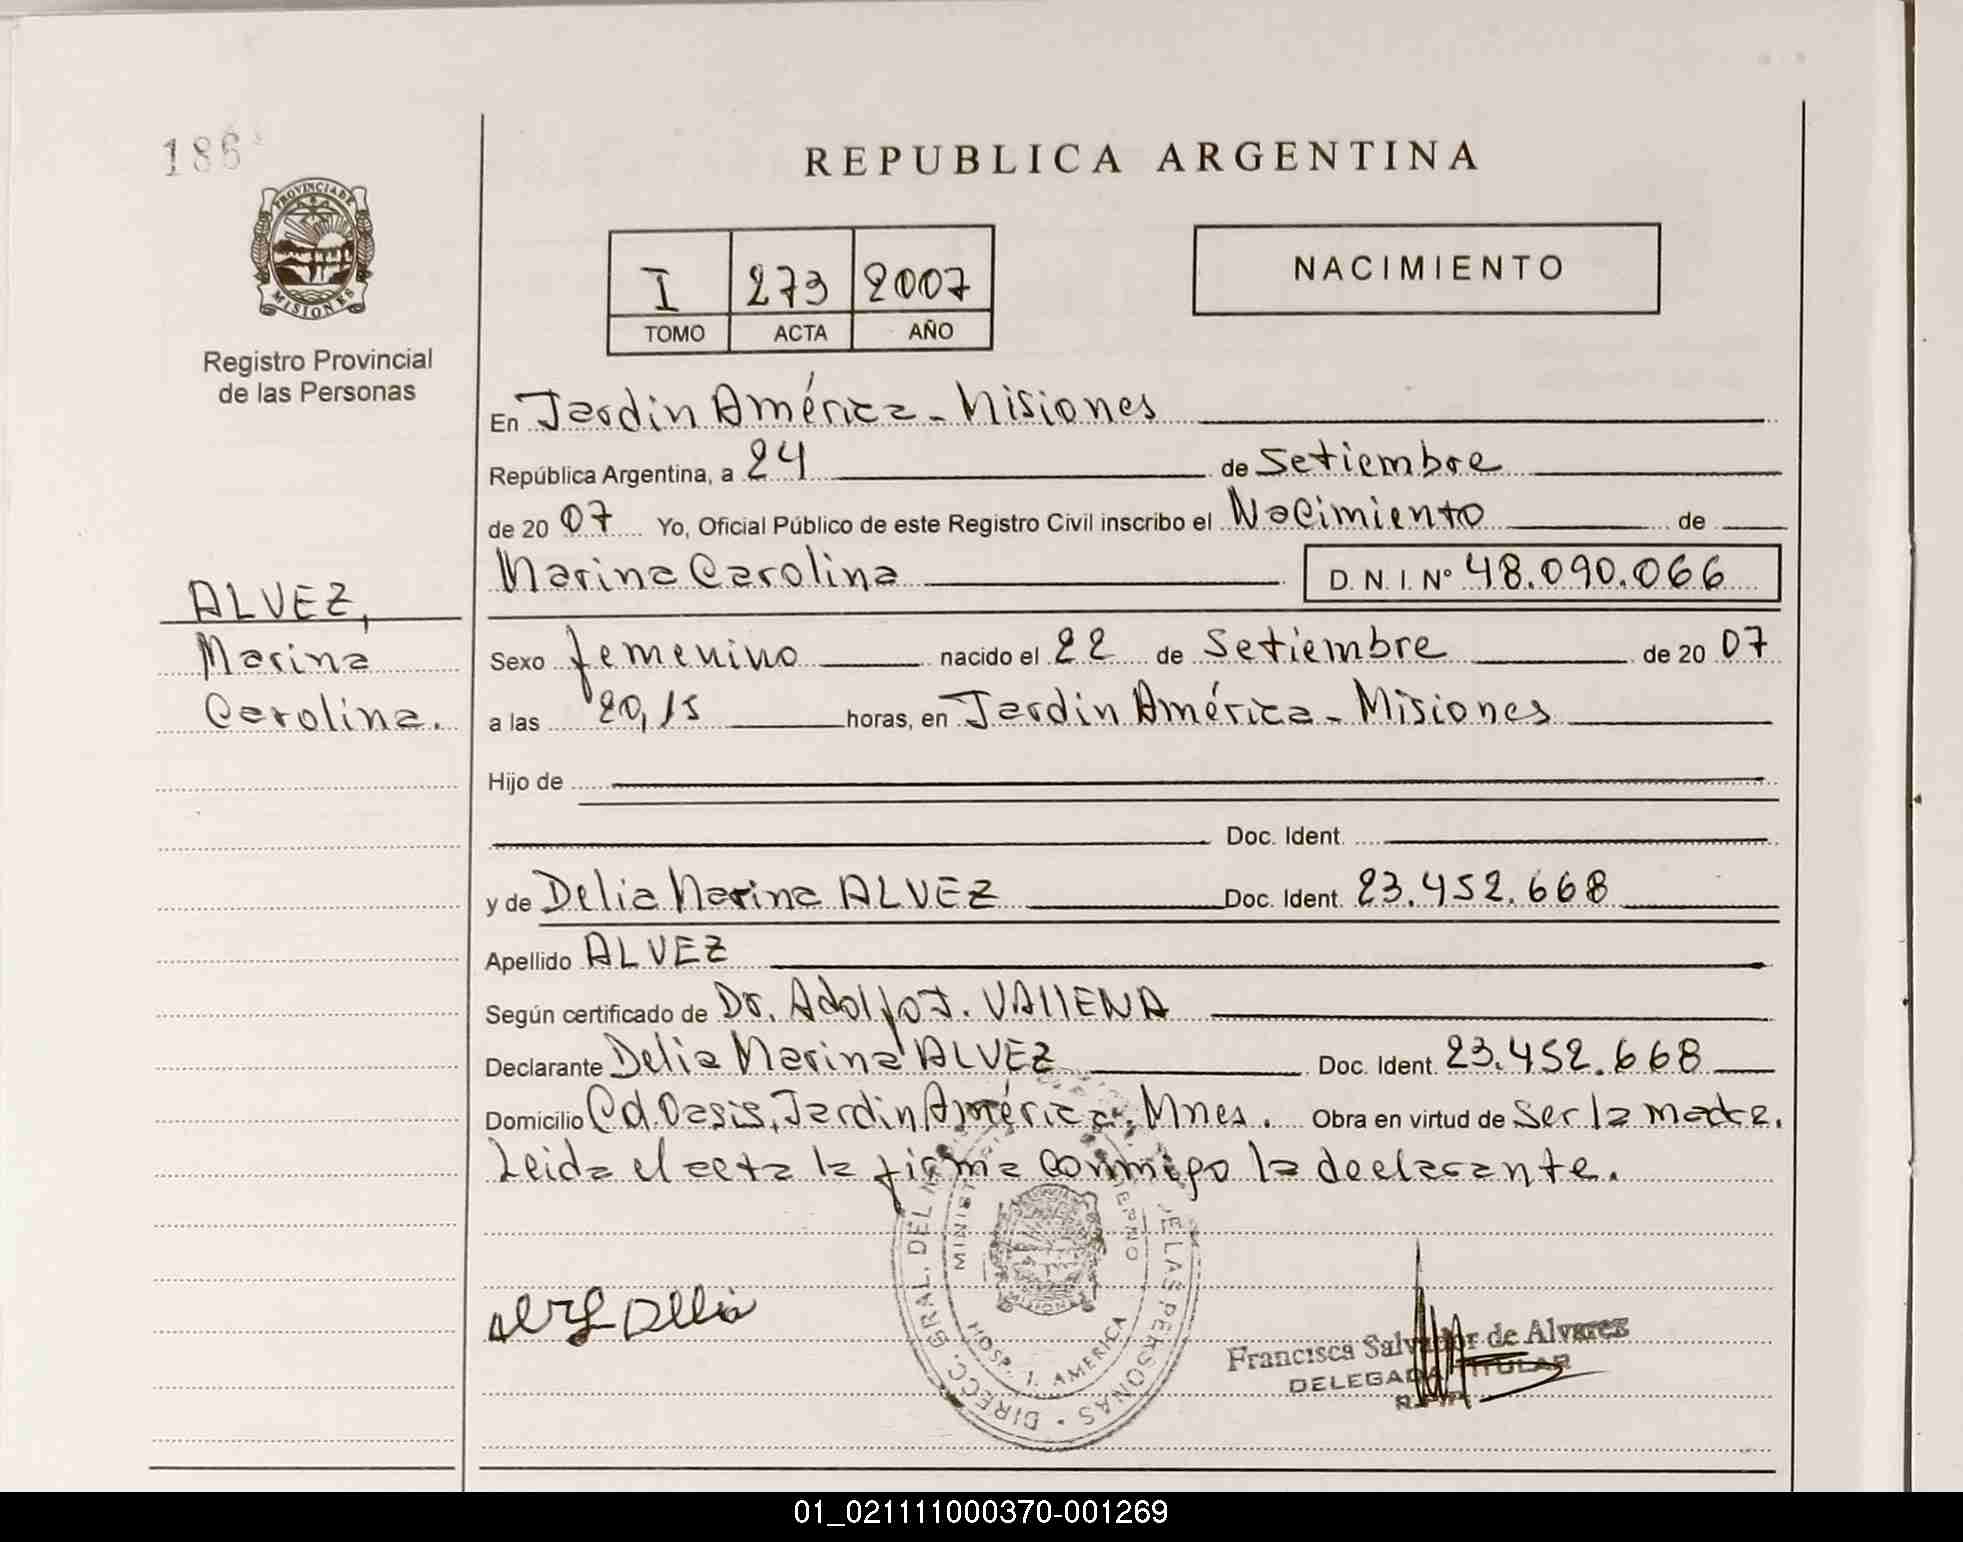 186
PROVINCIA DE
MISIONES
Registro Provincial
de las Personas
REPUBLICA ARGENTINA
I 273 2007
TOMO ACTA AÑO
NACIMIENTO
En Jardin América - Misiones
República Argentina, a 24 de Setiembre
de 20 07 Yo, Oficial Público de este Registro Civil inscribo el Nacimiento de
Marina Carolina D. N. I. Nº 48.090.066
ALVEZ,
Marina
Carolina.
Sexo femenino nacido el 22 de Setiembre de 20 07
a las 20,15 horas, en Jardin América - Misiones
Hijo de
Doc. Ident.
y de Delia Marina ALVEZ Doc. Ident. 23.452.668
Apellido ALVEZ
Según certificado de Dr. Adolfo J. VAllENA
Declarante Delia Marina ALVEZ Doc. Ident. 23.452.668
Domicilio Cd. Oasis, Jardin América, Mnes. Obra en virtud de Ser la madre.
Leida el acta la firma conmigo la declarante.
DIRECC. GRAL. DEL DE LAS PERSONAS
HOSP. J. AMERICA
Delia
Francisca Salvador de Alvarez
DELEGADA TITULAR
01_021111000370-001269